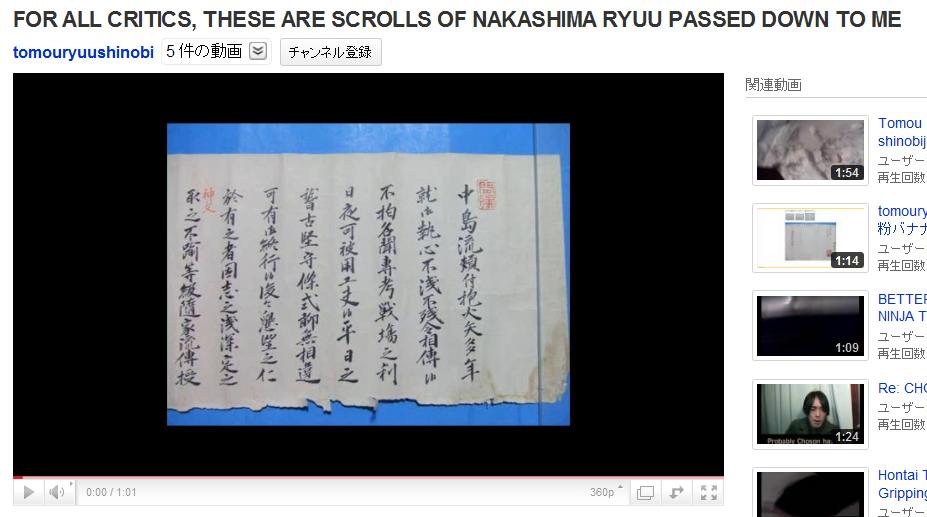 FOR ALL CRITICS, THESE ARE SCROLLS OF NAKASHIMA RYUU PASSED DOWN TO ME
tomouryuushinobi 5 件の動画 チャンネル登録
中島流頬付抱火矢多年
就御執心不浅不残令相傳候
不拘名聞專考戦場之利
日夜可被用工夫候平日之
古堅守條式聊無相違
可有御終行候後々懇望之仁
於有之者因志之浅深定之
神文
之不踰等級隨家流傳授
0:00 / 1:01
360p
関連動画
1:54
Tomou
shinobij
ユーザー
再生回数
1:14
tomoury
粉バナナ
ユーザー
再生回数
1:09
BETTER
NINJA T
ユーザー
再生回数
Probably Choson ha
1:24
Re: CHO
ユーザー
再生回数
Hontai T
Gripping
ユーザー